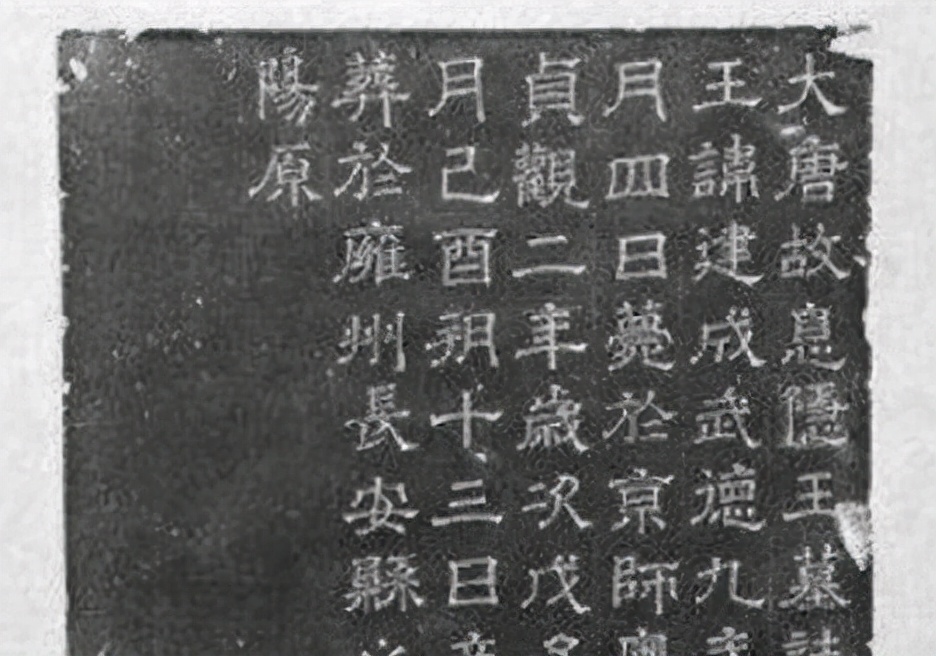 大唐故息隱王墓誌
王諱建成武德九
月四日薨於京師
貞觀二年歲次戊
月己酉朔十三日
葬於雍州長安縣
陽原